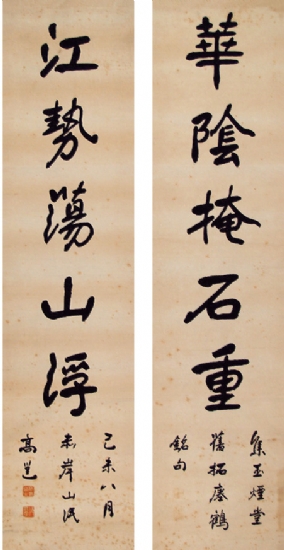 華陰掩石重
集玉煙堂
舊拓瘞鶴
銘句
江勢蕩山浮
己未八月
赤岸山民
高邕